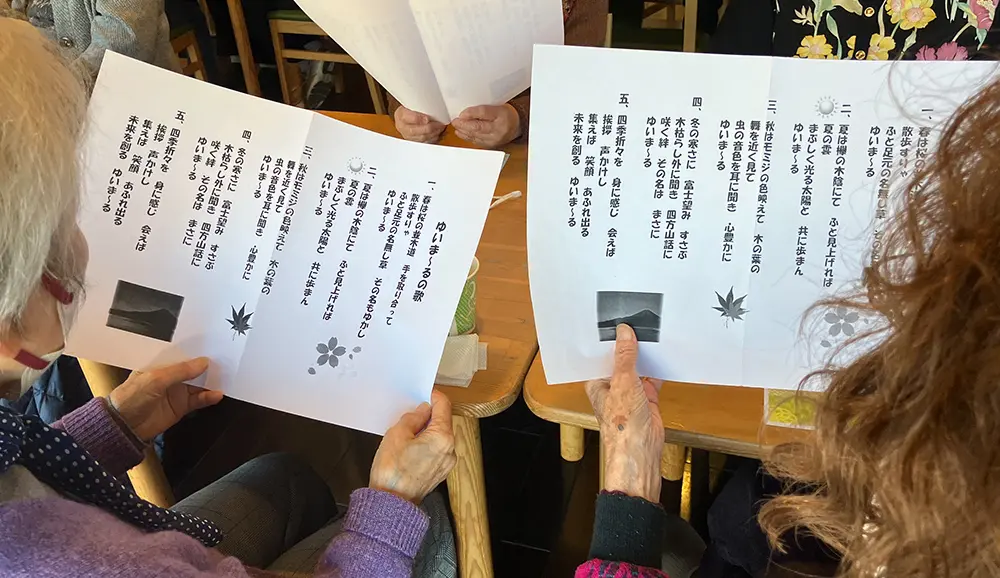 ゆいま～るの歌
一、春は桜の並木道　手を取り合って
散歩すりゃ
ふと足元の名無し草　その名もゆかし
ゆいま～る
二、夏は欅の木陰にて　ふと見上げれば
夏の雲
まぶしく光る太陽と　共に歩まん
ゆいま～る
三、秋はモミジの色映えて　木の葉の
舞を近く見て
虫の音色を耳に聞き　心豊かに
ゆいま～る
四、冬の寒さに　富士望み　すさぶ
木枯らし外に聞き　四方山話に
咲く絆　その名は　まさに
ゆいま～る
五、四季折々を　身に感じ　会えば
挨拶　声かけし
集えば　笑顔　あふれ出る
未来を創る　ゆいま～る
一、春は桜の
散歩すりゃ
ふと足元の名無し草
ゆいま～る
二、夏は欅の木陰にて　ふと見上げれば
夏の雲
まぶしく光る太陽と　共に歩まん
ゆいま～る
三、秋はモミジの色映えて　木の葉の
舞を近く見て
虫の音色を耳に聞き　心豊かに
ゆいま～る
四、冬の寒さに　富士望み　すさぶ
木枯らし外に聞き　四方山話に
咲く絆　その名は　まさに
ゆいま～る
五、四季折々を　身に感じ　会えば
挨拶　声かけし
集えば　笑顔　あふれ出る
未来を創る　ゆいま～る